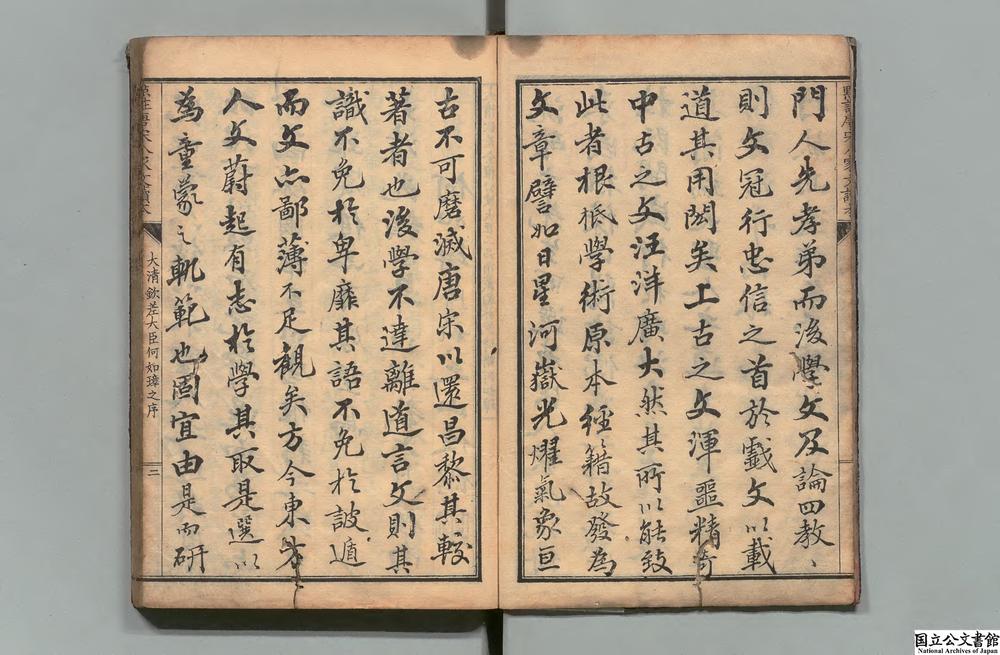 門人先孝弟而後學文及論四教、
則文冠行忠信之首於戲文以載
道其用閎矣上古之文渾噩精奇
中古之文汪洋廣大然其所以能致
此者根柢學術原本經籍故發為
文章譬如日星河嶽光燿氣象亘
古不可磨滅唐宋以還昌黎其較
著者也後學不達離道言文則其
識不免於卑靡其語不免於詖遁
而文亦鄙薄不足觀矣方今東方
人文蔚起有志於學其取是選以
為童蒙之軌範也固宜由是而研
大清欽差大臣何如璋之序
二
国立公文書館
National Archives of Japan